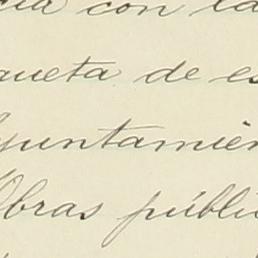 cia con la
queta de es
Ayuntamien
Obras públic